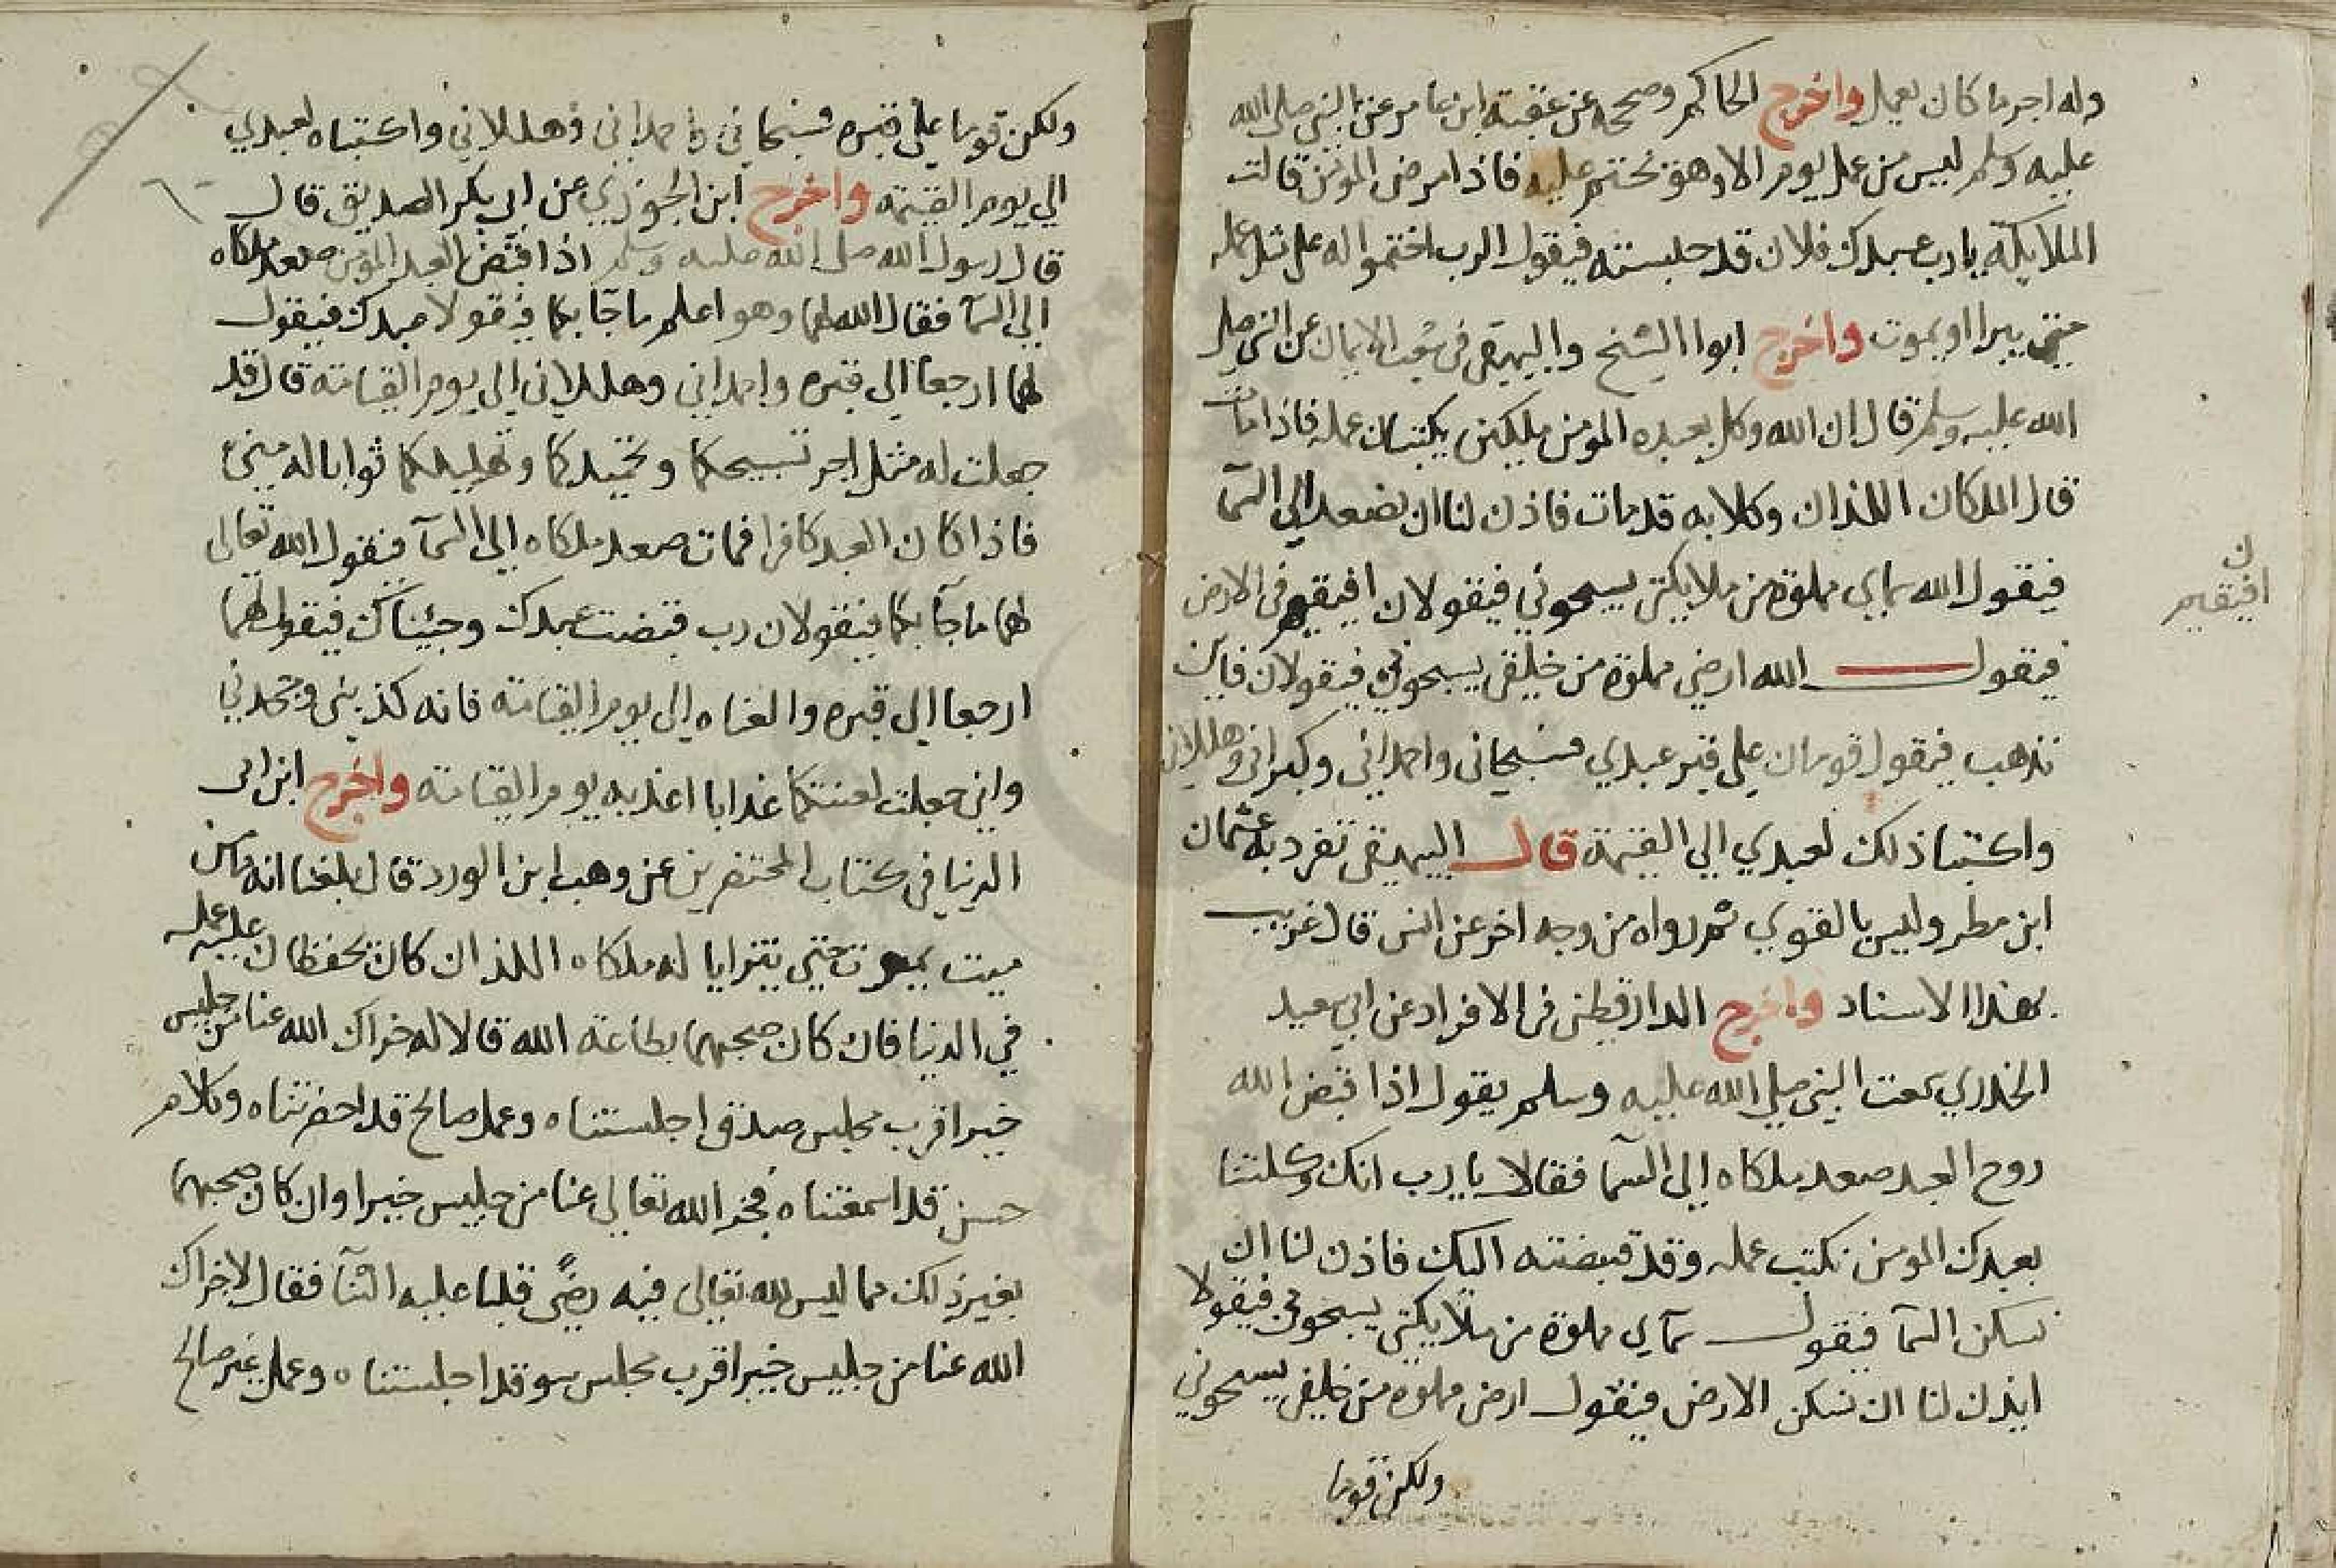 وله اجر ما كان يعمل واخرج الحاكم وصححه عن عقبة ابن عامر عن النبي صلى الله
عليه وسلم ليس من عمل يوم الا وهو يختم عليه فاذا مرض المومن قالت
الملايكة يا رب عبدك فلان قد حبسته فيقول الرب اختموا له على مثل عمله
حتى يبرا او يموت واخرج ابوا الشيخ والبيهقي في شعب الايمان عن النبي صلى
الله عليه وسلم قال ان الله وكل بعبده المومن ملكين يكتبان عمله فاذا مات
قال الملكان اللذان وكلا به قد مات فاذن لنا ان نصعد الى السما
فيقول الله سماي مملوة من ملايكتي يسبحوني فيقولان افيقيم في الارض
ن
افنقيم
فيقول الله ارضي مملوة من خلقي يسبحوني فيقولان فاين
نذهب فيقول قومان على قبر عبدي فسبحاني واحمداني وكبراني وهللاني
واكتبا ذلك لعبدي الى القيمة قال البيهقي تفرد به عثمان
ابن مطر وليس بالقوي ثم رواه من وجه اخر عن انس قال غريب
بهذا الاسناد واخرج الدارقطني في الافراد عن ابي سعيد
الخدري سمعت النبي صلى الله عليه وسلم يقول اذا قبض الله
روح العبد صعد ملكاه الى السما فقالا يا رب انك وكلتنا
بعبدك المومن نكتب عمله وقد قبضته اليك فاذن لنا ان
نسكن السما فيقول سماي مملوة من ملايكتي يسبحوني فيقولا
ايذن لنا ان نسكن الارض فيقول ارضي مملوة من خلقي يسبحوني
ولكن قوما
ولكن قوما على قبره فسبحاني واحمداني وهللاني واكتباه لعبدي
الى يوم القيمة واخرج ابن الجوزي عن ابي بكر الصديق قال
قال رسول الله صلى الله عليه وسلم اذا قبض العبد المومن صعد ملكاه
الى السما فقال الله لهما وهو اعلم ما جا بكما فيقولا عبدك فيقول
لهما ارجعا الى قبره واحمداني وهللاني الى يوم القيامة قال قد
جعلت له مثل اجر تسبيحكما وتحميدكما وتهليلكما ثوابا له مني
فاذا كان العبد كافرا فمات صعد ملكاه الى السما فيقول الله تعالى
لهما ما جا بكما فيقولان رب قبضت عبدك وجئناك فيقول لهما
ارجعا الى قبره والعناه الى يوم القيامة فانه كذبني وجحدني
واني جعلت لعنتكما عذابا اعذبه يوم القيامة واخرج ابن ابى
الدنيا في كتاب المحتضرين عن وهب ابن الورد قال بلغنا انه ما من
ميت يموت حتى يتزايا له ملكاه اللذان كان يحفظان عليه عمله
في الدنيا فان كان صحبهما بطاعة الله قالا له جزاك الله عنا من جليس
خيرا قرب مجلس صدق اجلستناه وعمل صالح قد احضرتناه وكلام
حسن قد اسمعتناه فجز الله تعالى عنا من جليس خيرا وان كان صحبهما
بغير ذلك مما ليس لله تعالى فيه رضًى قلبا عليه الثنا فقالا جزاك
الله عنا من جليس خيرا قرب مجلس سو قد اجلستناه وعمل غير صالح